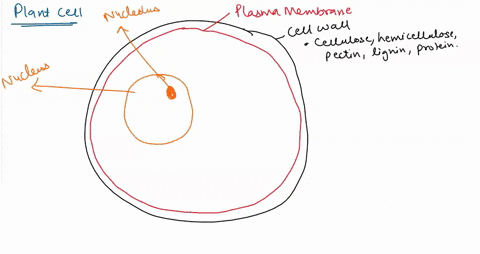 Plant Cell
Nucleolus
Plasma Membrane
Cell wall
• Cellulose, hemicellulose,
pectin, lignin, protein.
Nucleus